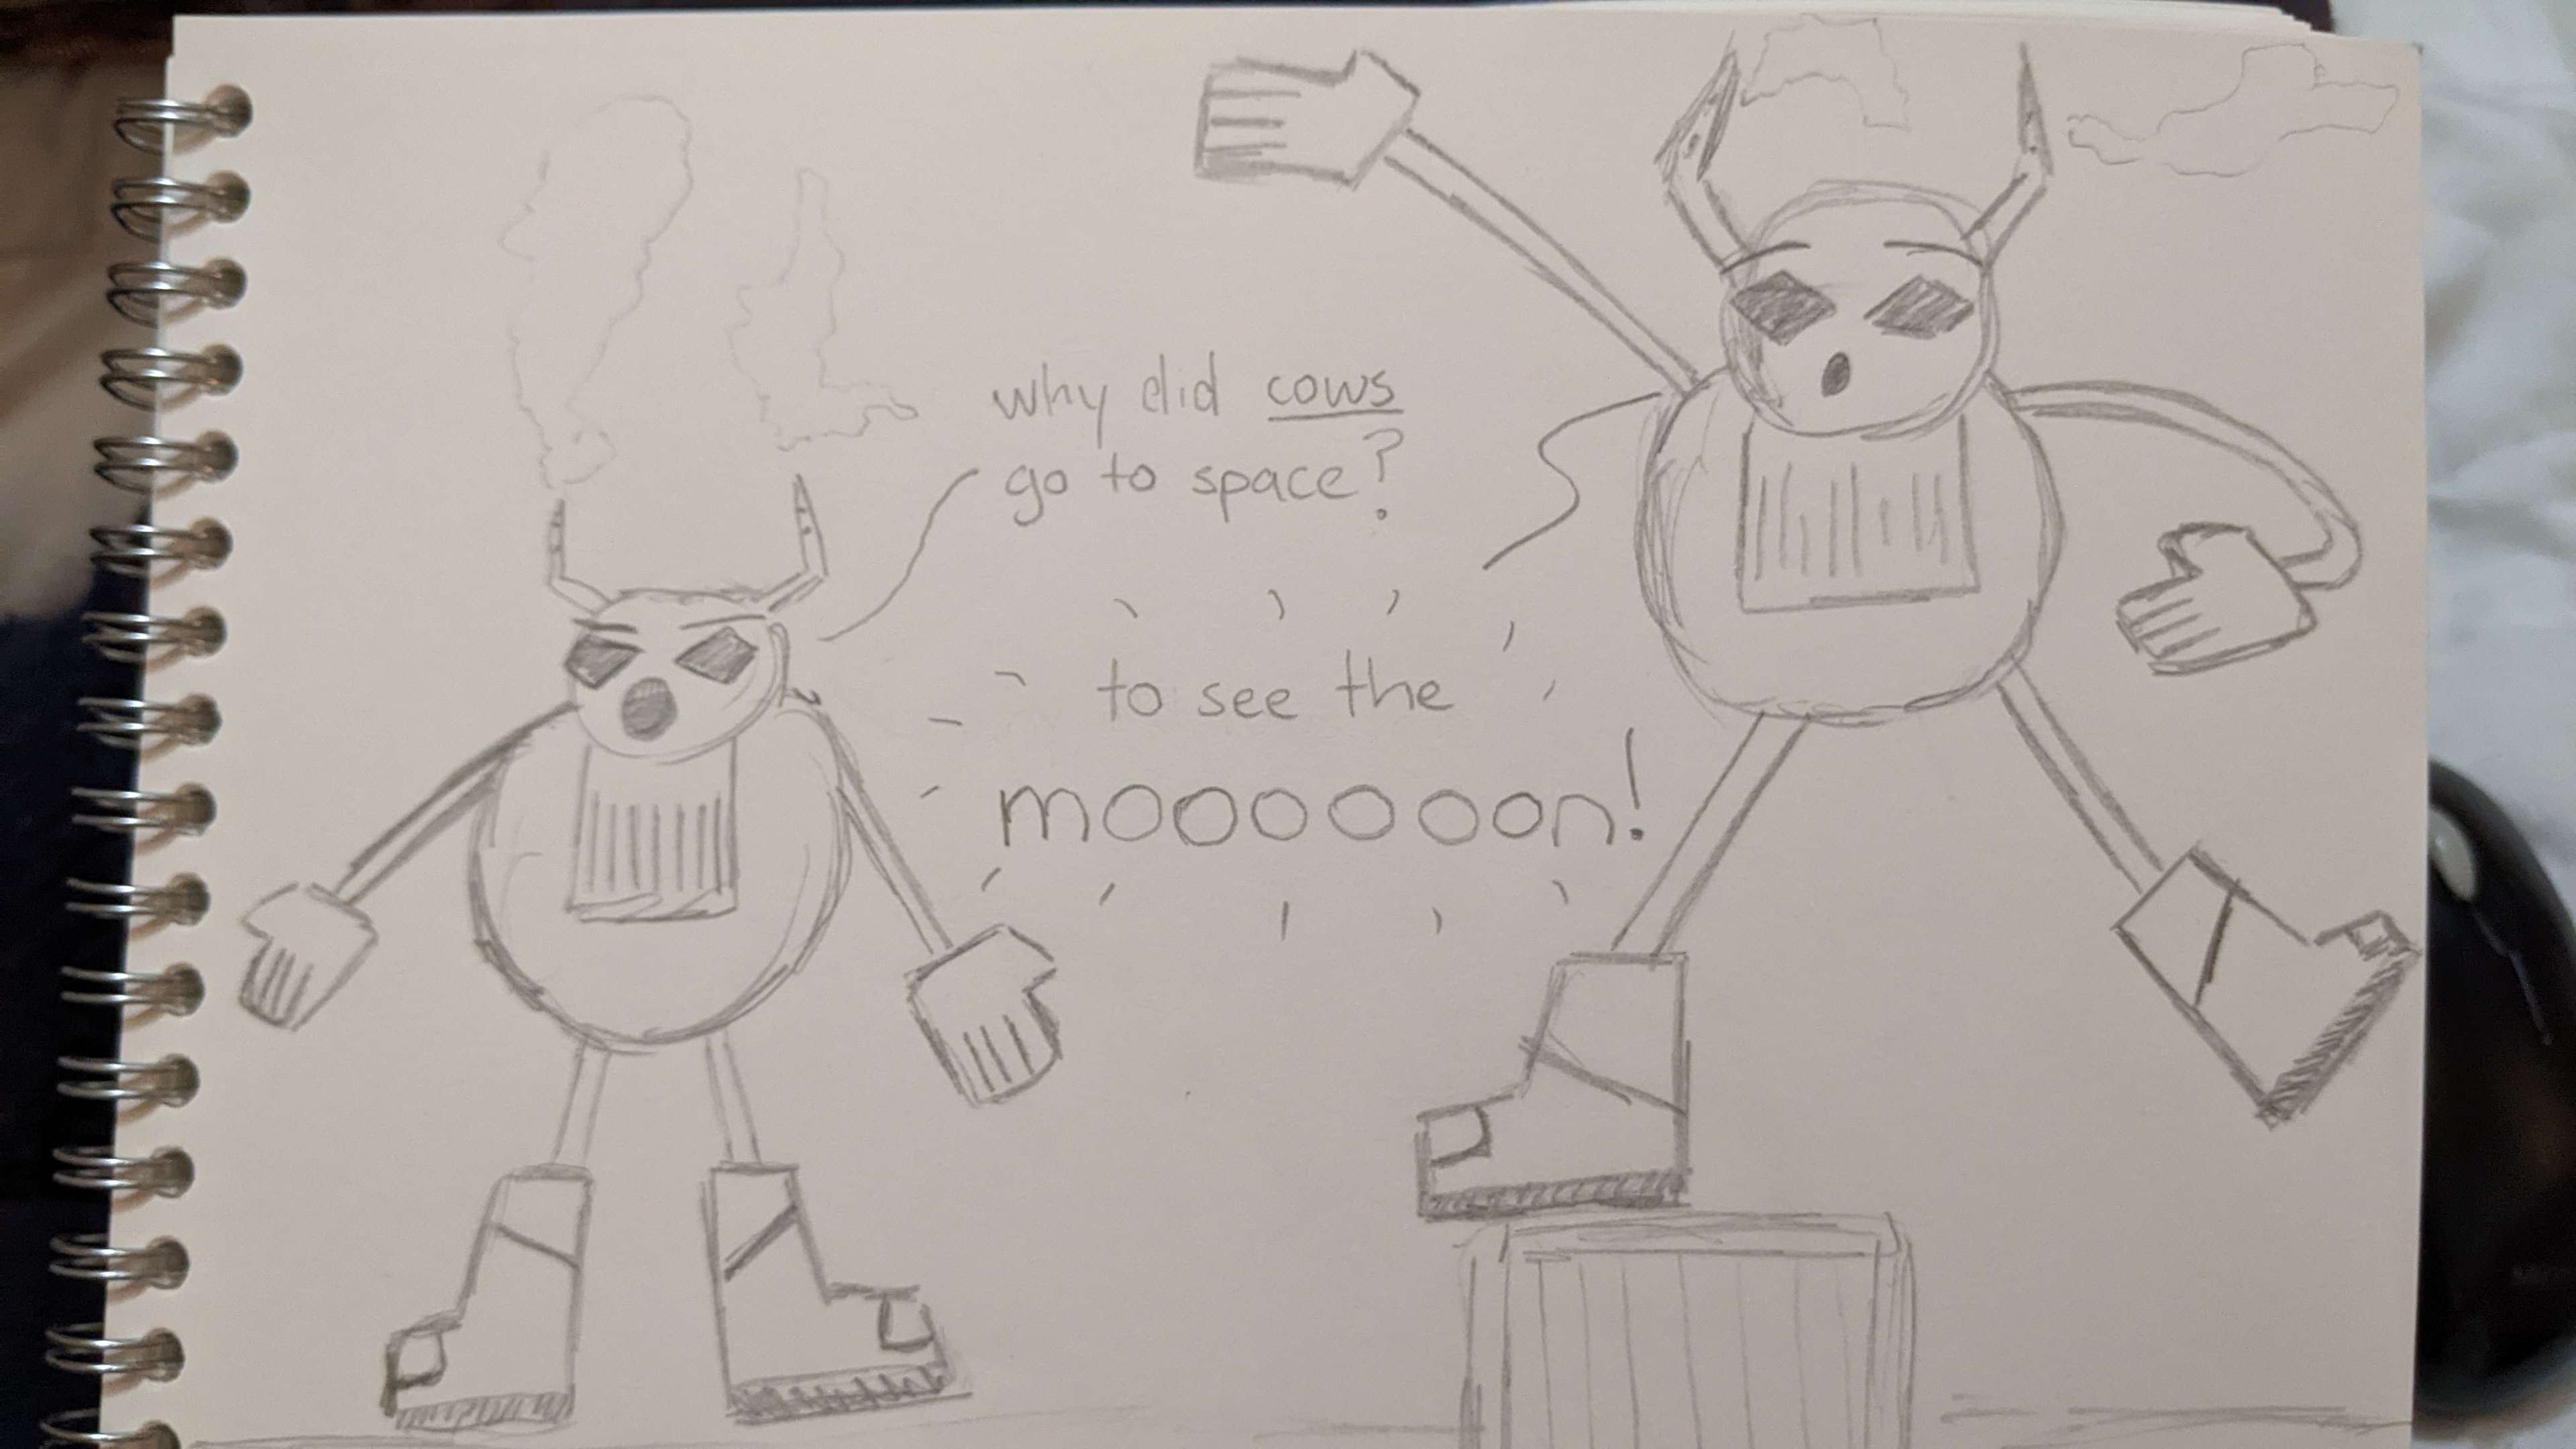 why did cows
go to space?
to see the
moooooon!